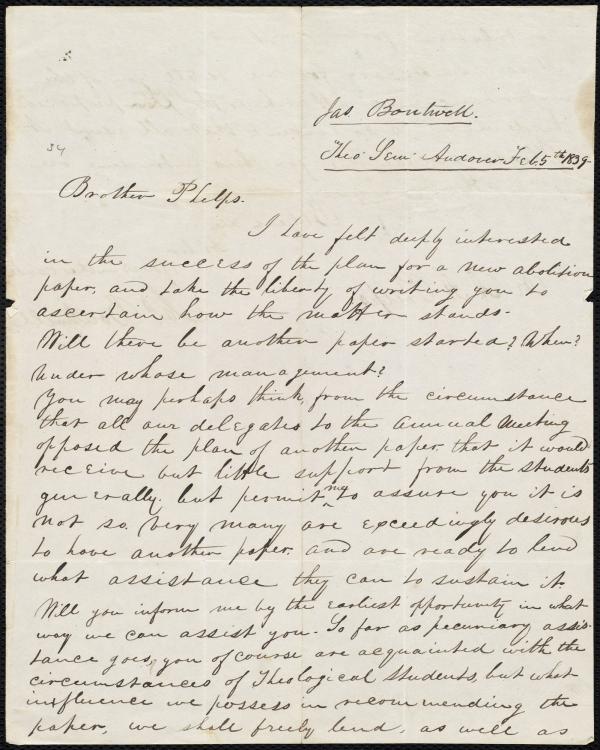 Jas. Boutwell.
Theo. Sem. Andover Feb. 5th 1839
34
Brother Phelps.
I have felt deeply interested
in the success of the plan for a new abolition
paper, and take the liberty of writing you to
ascertain how the matter stands.
Will there be another paper started? When?
Under whose management?
You may perhaps think, from the circumstance
that all our delegates to the Annual Meeting
opposed the plan of another paper, that it would
receive but little support from the students
generally. but permit me to assure you it is
not so. Very many are exceedingly desirous
to have another paper. and are ready to lend
what assistance they can to sustain it.
Will you inform me by the earliest opportunity in what
way we can assist you. So far as pecuniary assis-
tance goes, you of course are acquainted with the
circumstances of Theological Students, but what
influence we possess in recommending the
paper, we shall freely lend, as well as